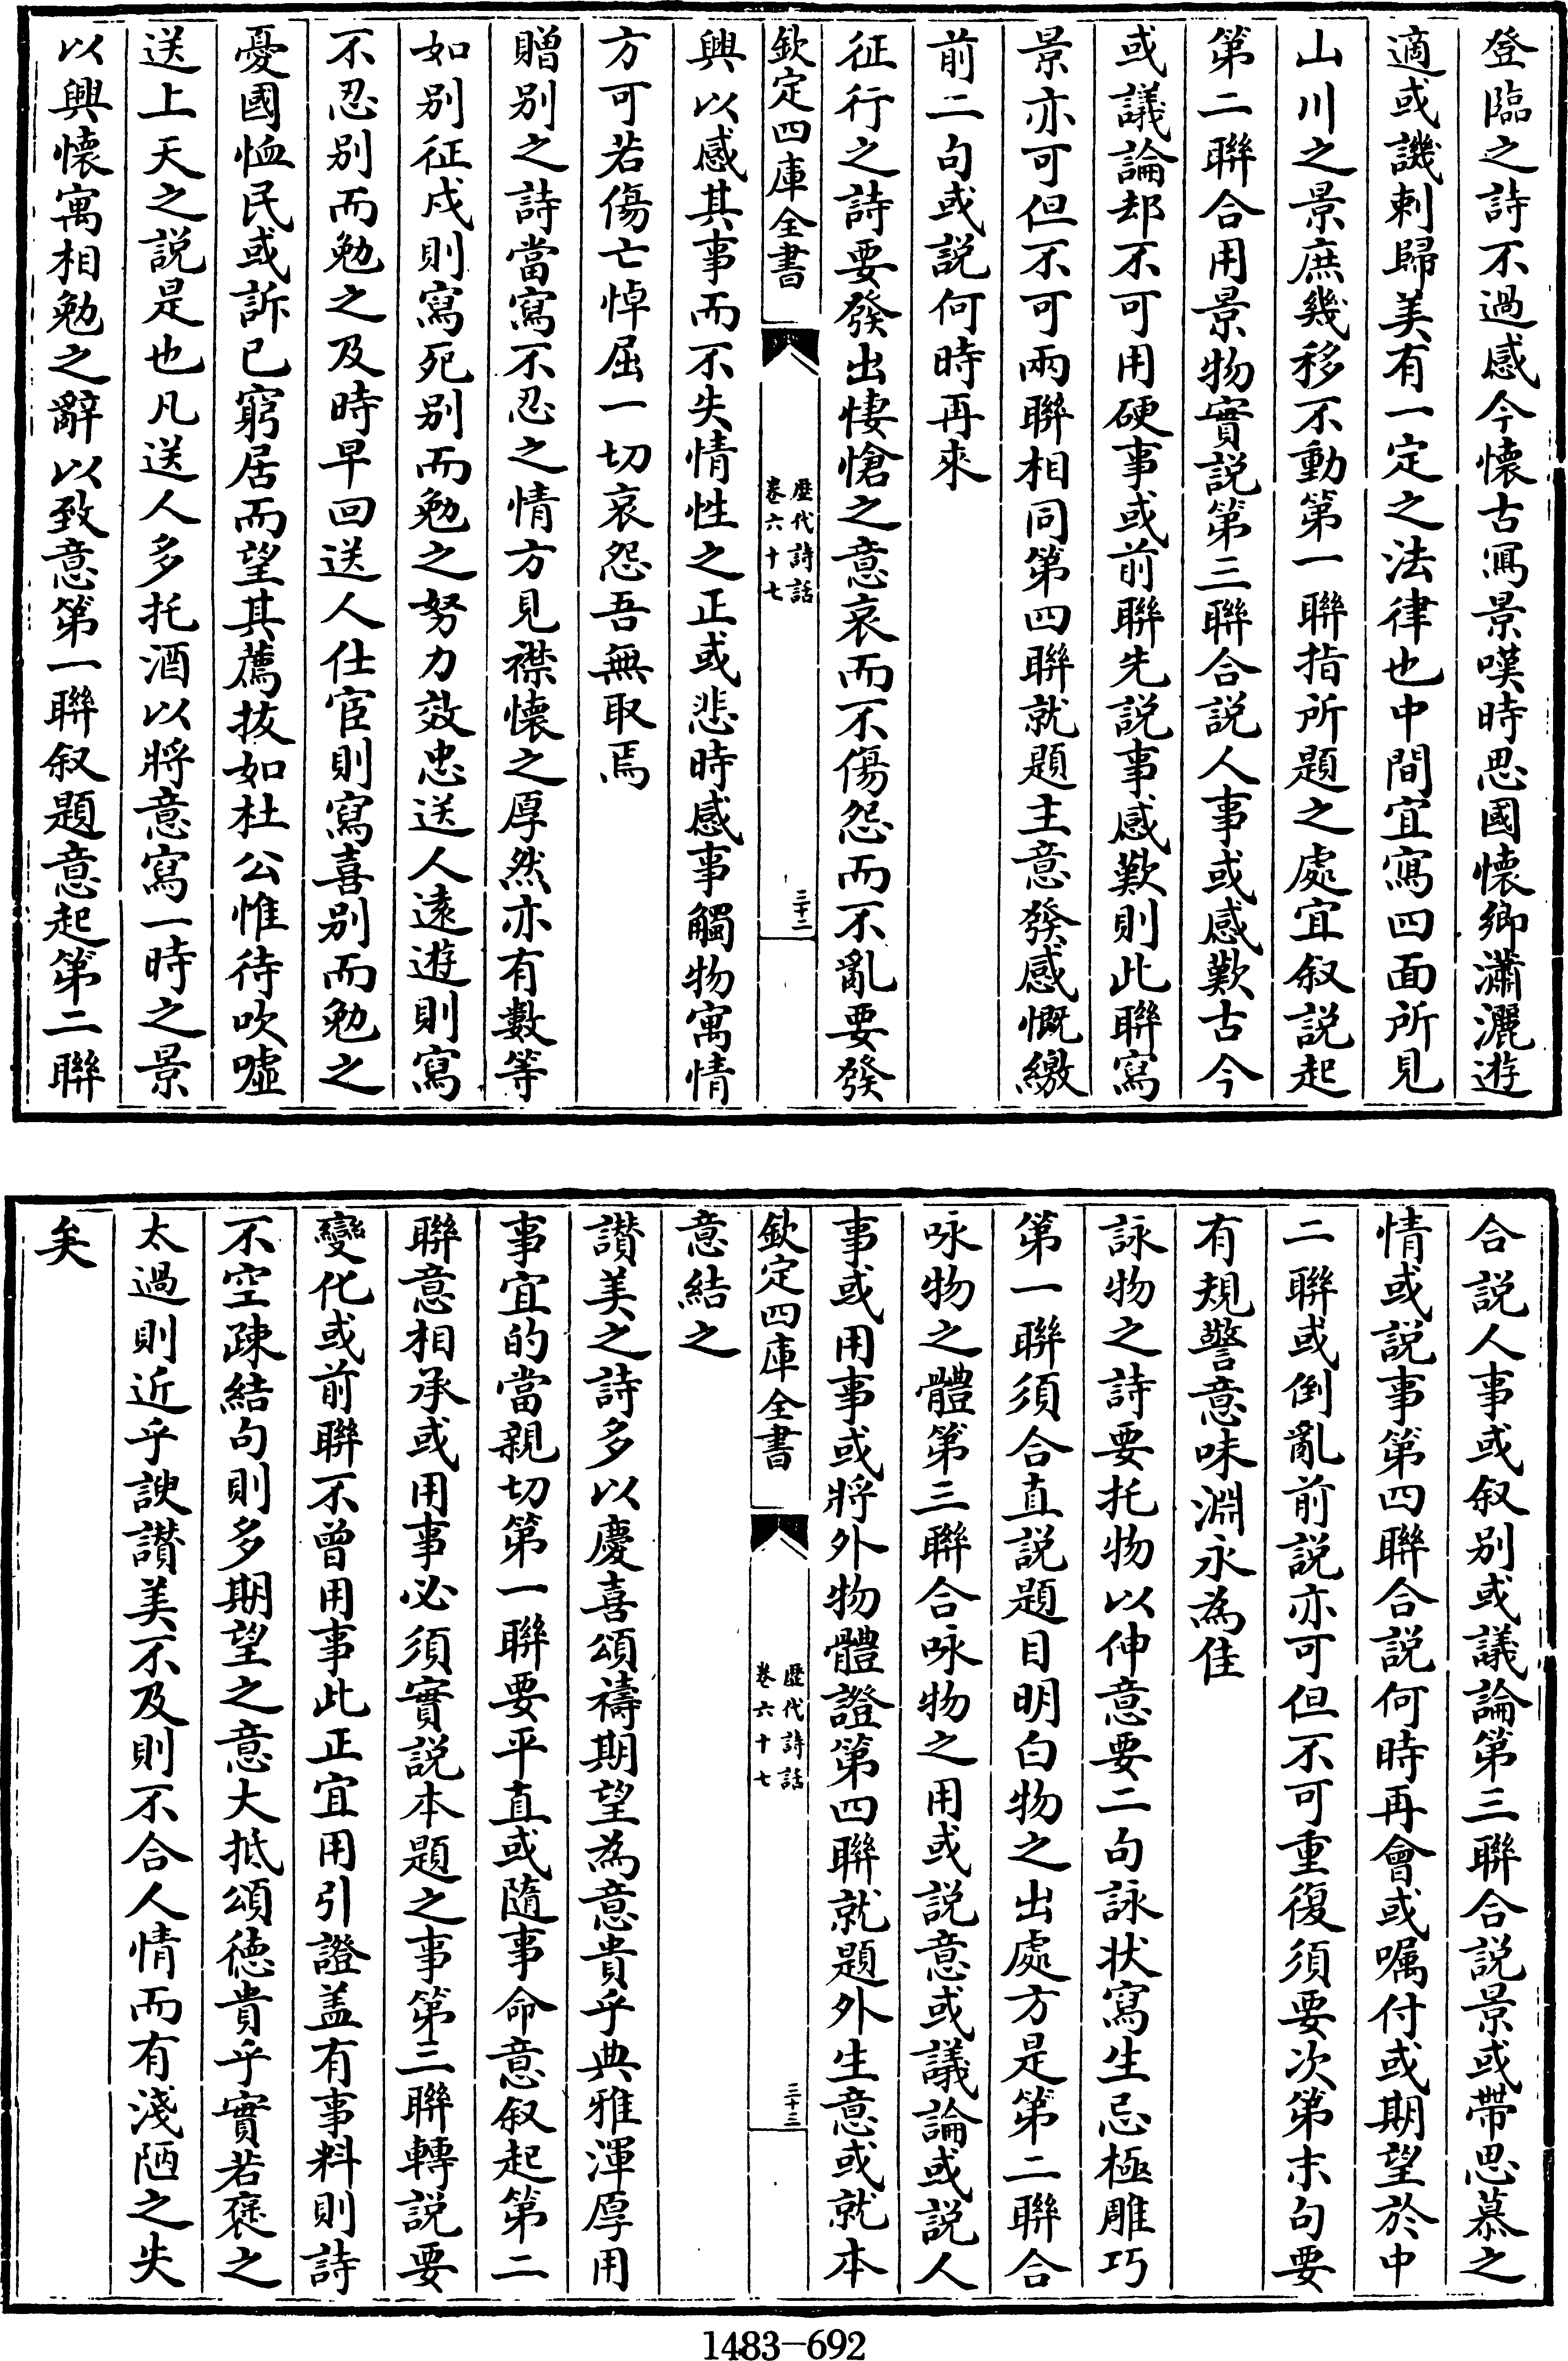 登臨之詩不過感今懷古冩景嘆時思國懷鄉瀟灑遊
適或譏刺歸美有一定之法律也中間宜寫四面所見
山川之景庶幾移不動第一聯指所題之處宜叙説起
第二聯合用景物實説第三聯合説人事或感歎古今
或議論却不可用硬事或前聯先説事感歎則此聯寫
景亦可但不可兩聯相同第四聯就題主意發感慨繳
前二句或説何時再來
征行之詩要發出悽愴之意哀而不傷怨而不亂要發
欽定四庫全書
歴代詩話
卷六十七
三十二
興以感其事而不失情性之正或悲時感事觸物寓情
方可若傷亡悼屈一切哀怨吾無取焉
贈别之詩當寫不忍之情方見襟懷之厚然亦有數等
如别征戍則寫死别而勉之努力效忠送人遠遊則寫
不忍别而勉之及時早回送人仕宦則寫喜别而勉之
憂國恤民或訴已窮居而望其薦拔如杜公惟待吹嘘
送上天之説是也凡送人多托酒以將意寫一時之景
以興懷寓相勉之辭以致意第一聯叙題意起第二聯
合説人事或叙别或議論第三聯合説景或帶思慕之
情或説事第四聯合説何時再會或嘱付或期望於中
二聯或倒亂前説亦可但不可重復須要次第末句要
有規警意味淵永為佳
詠物之詩要托物以伸意要二句詠状寫生忌極雕巧
第一聯須合直説題目明白物之出處方是第二聯合
咏物之體第三聯合咏物之用或説意或議論或説人
事或用事或將外物體證第四聯就題外生意或就本
欽定四庫全書
歴代詩話
卷六十七
三十三
意結之
讃美之詩多以慶喜頌禱期望為意貴乎典雅渾厚用
事宜的當親切第一聯要平直或隨事命意叙起第二
聯意相承或用事必須實説本題之事第三聯轉説要
變化或前聯不曾用事此正宜用引證盖有事料則詩
不空疎結句則多期望之意大抵頌徳貴乎實若褒之
太過則近乎諛讃美不及則不合人情而有淺陋之失
矣
1483-692